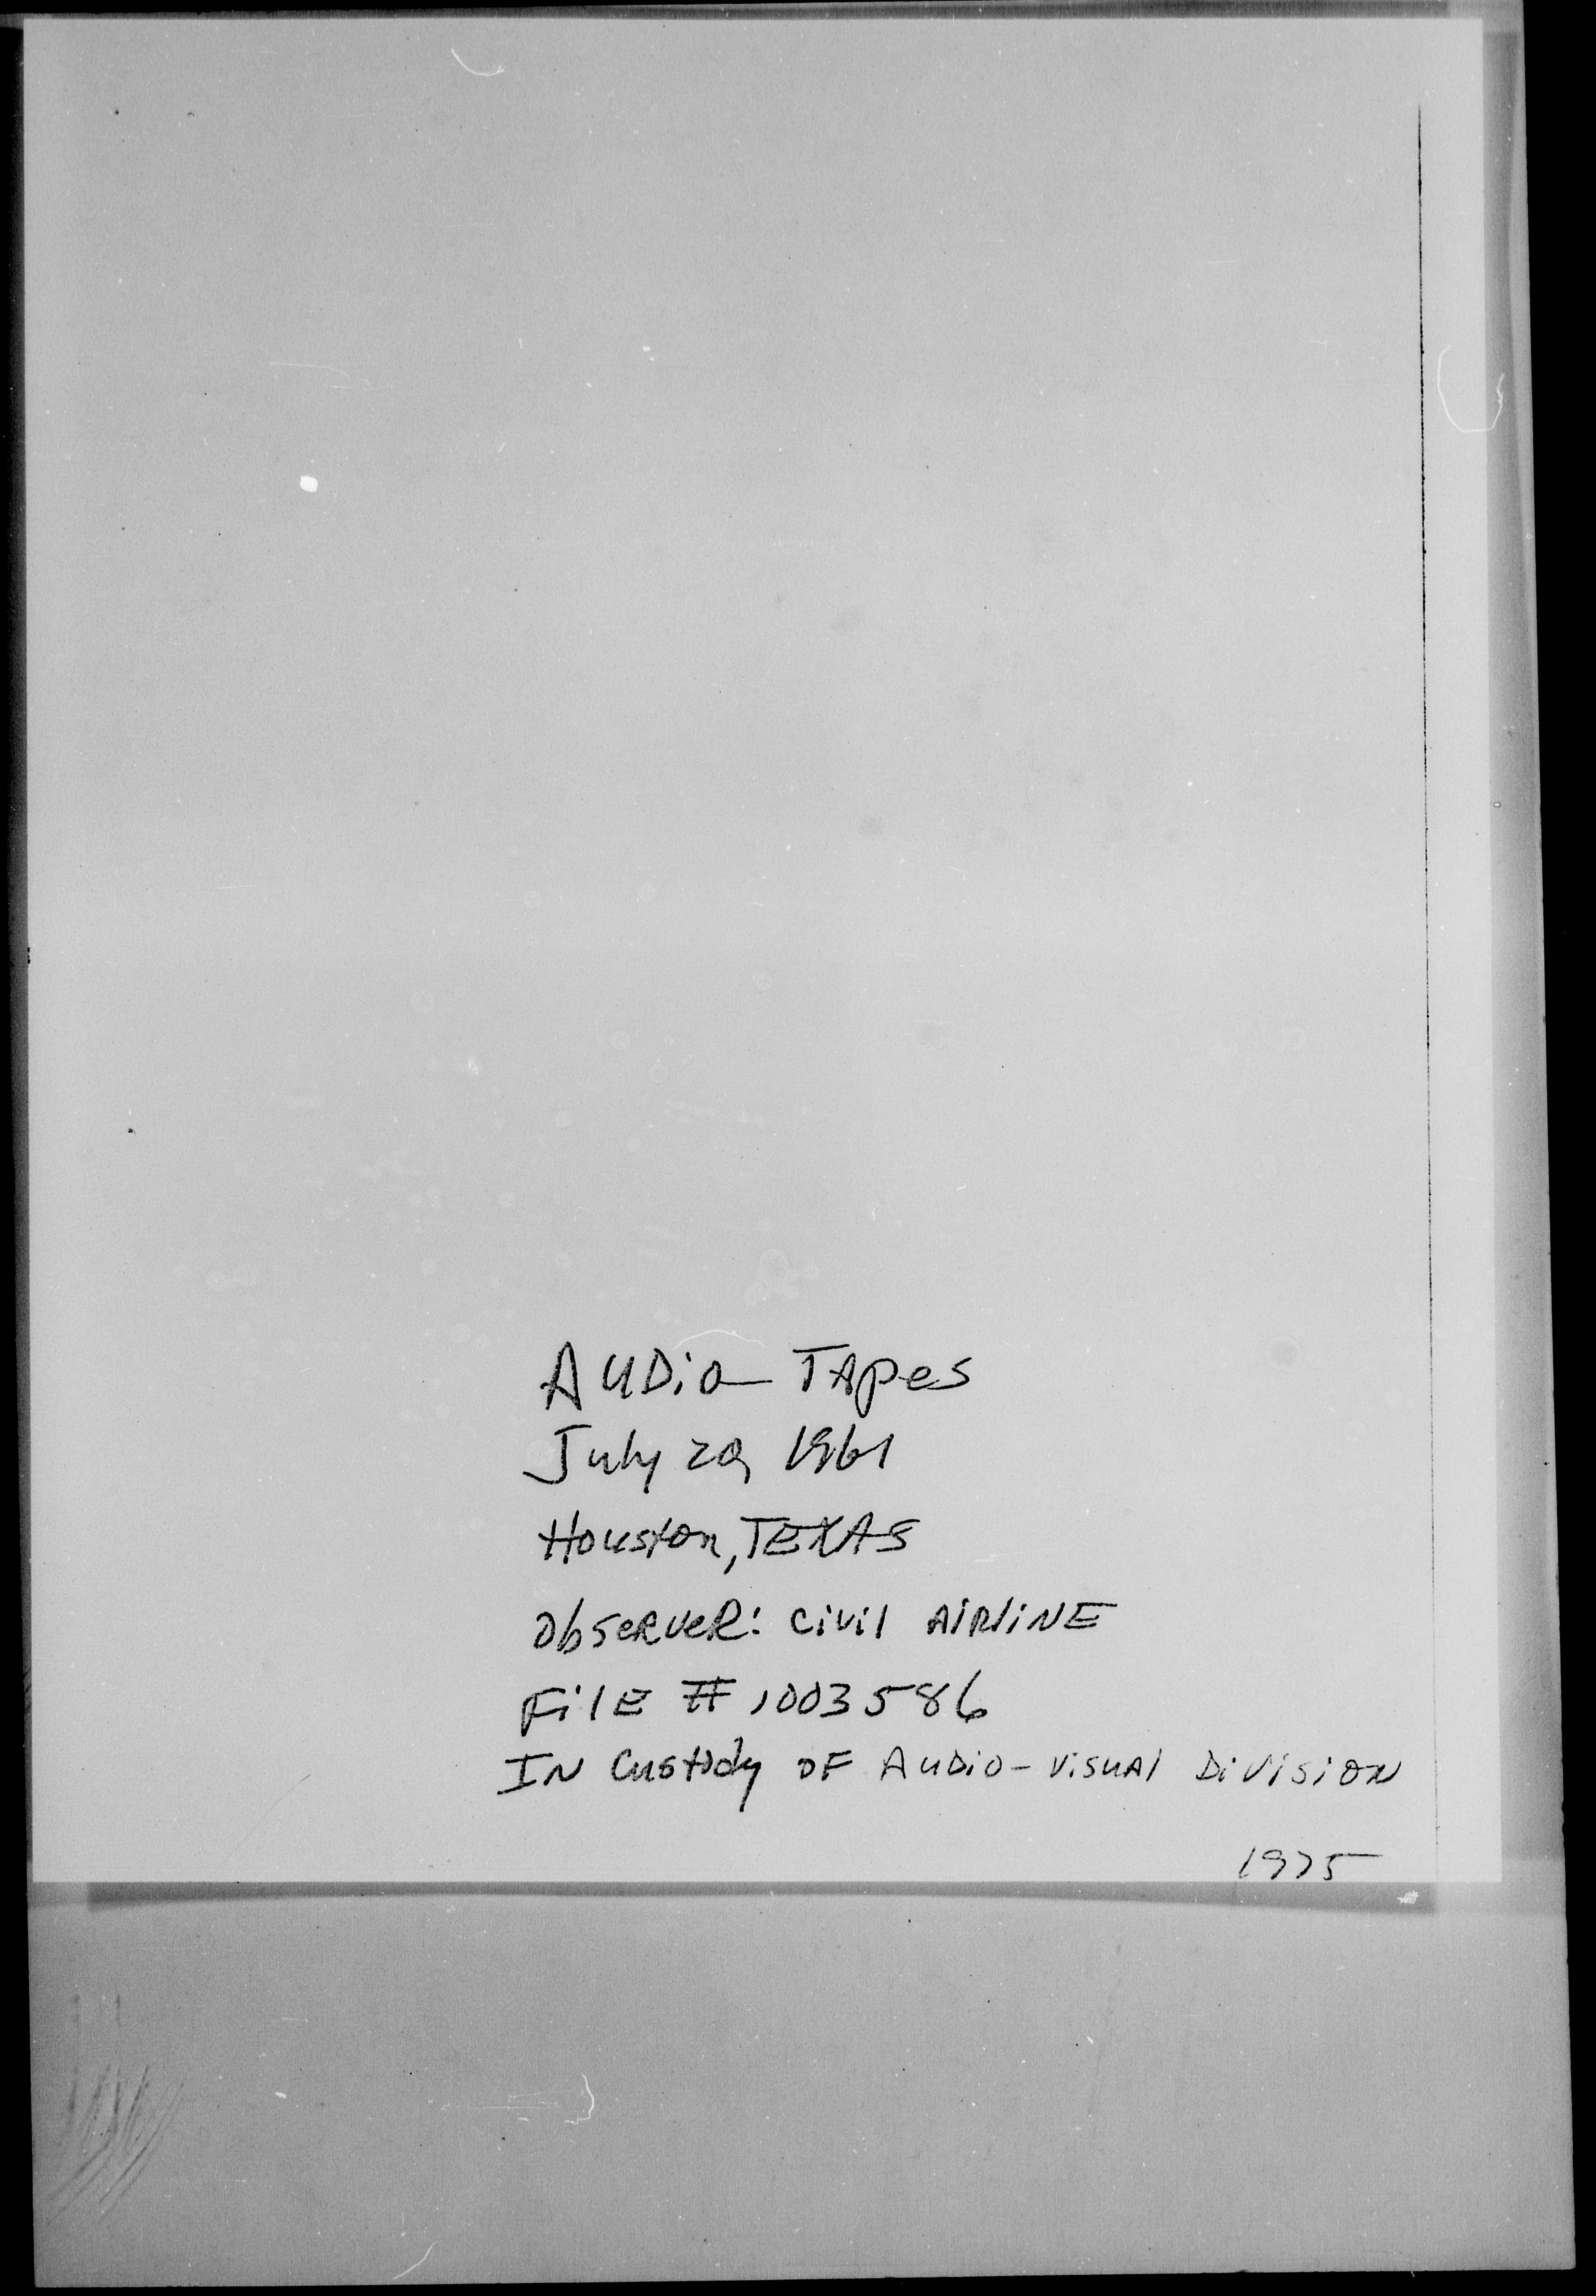 AUDio TApes
July 20, 1961
Houston, TEXAS
ObSeRveR: Civil AiRliNE
FilE # 1003586
IN Custody OF AUDiO-ViSUAl DiViSiON
1975